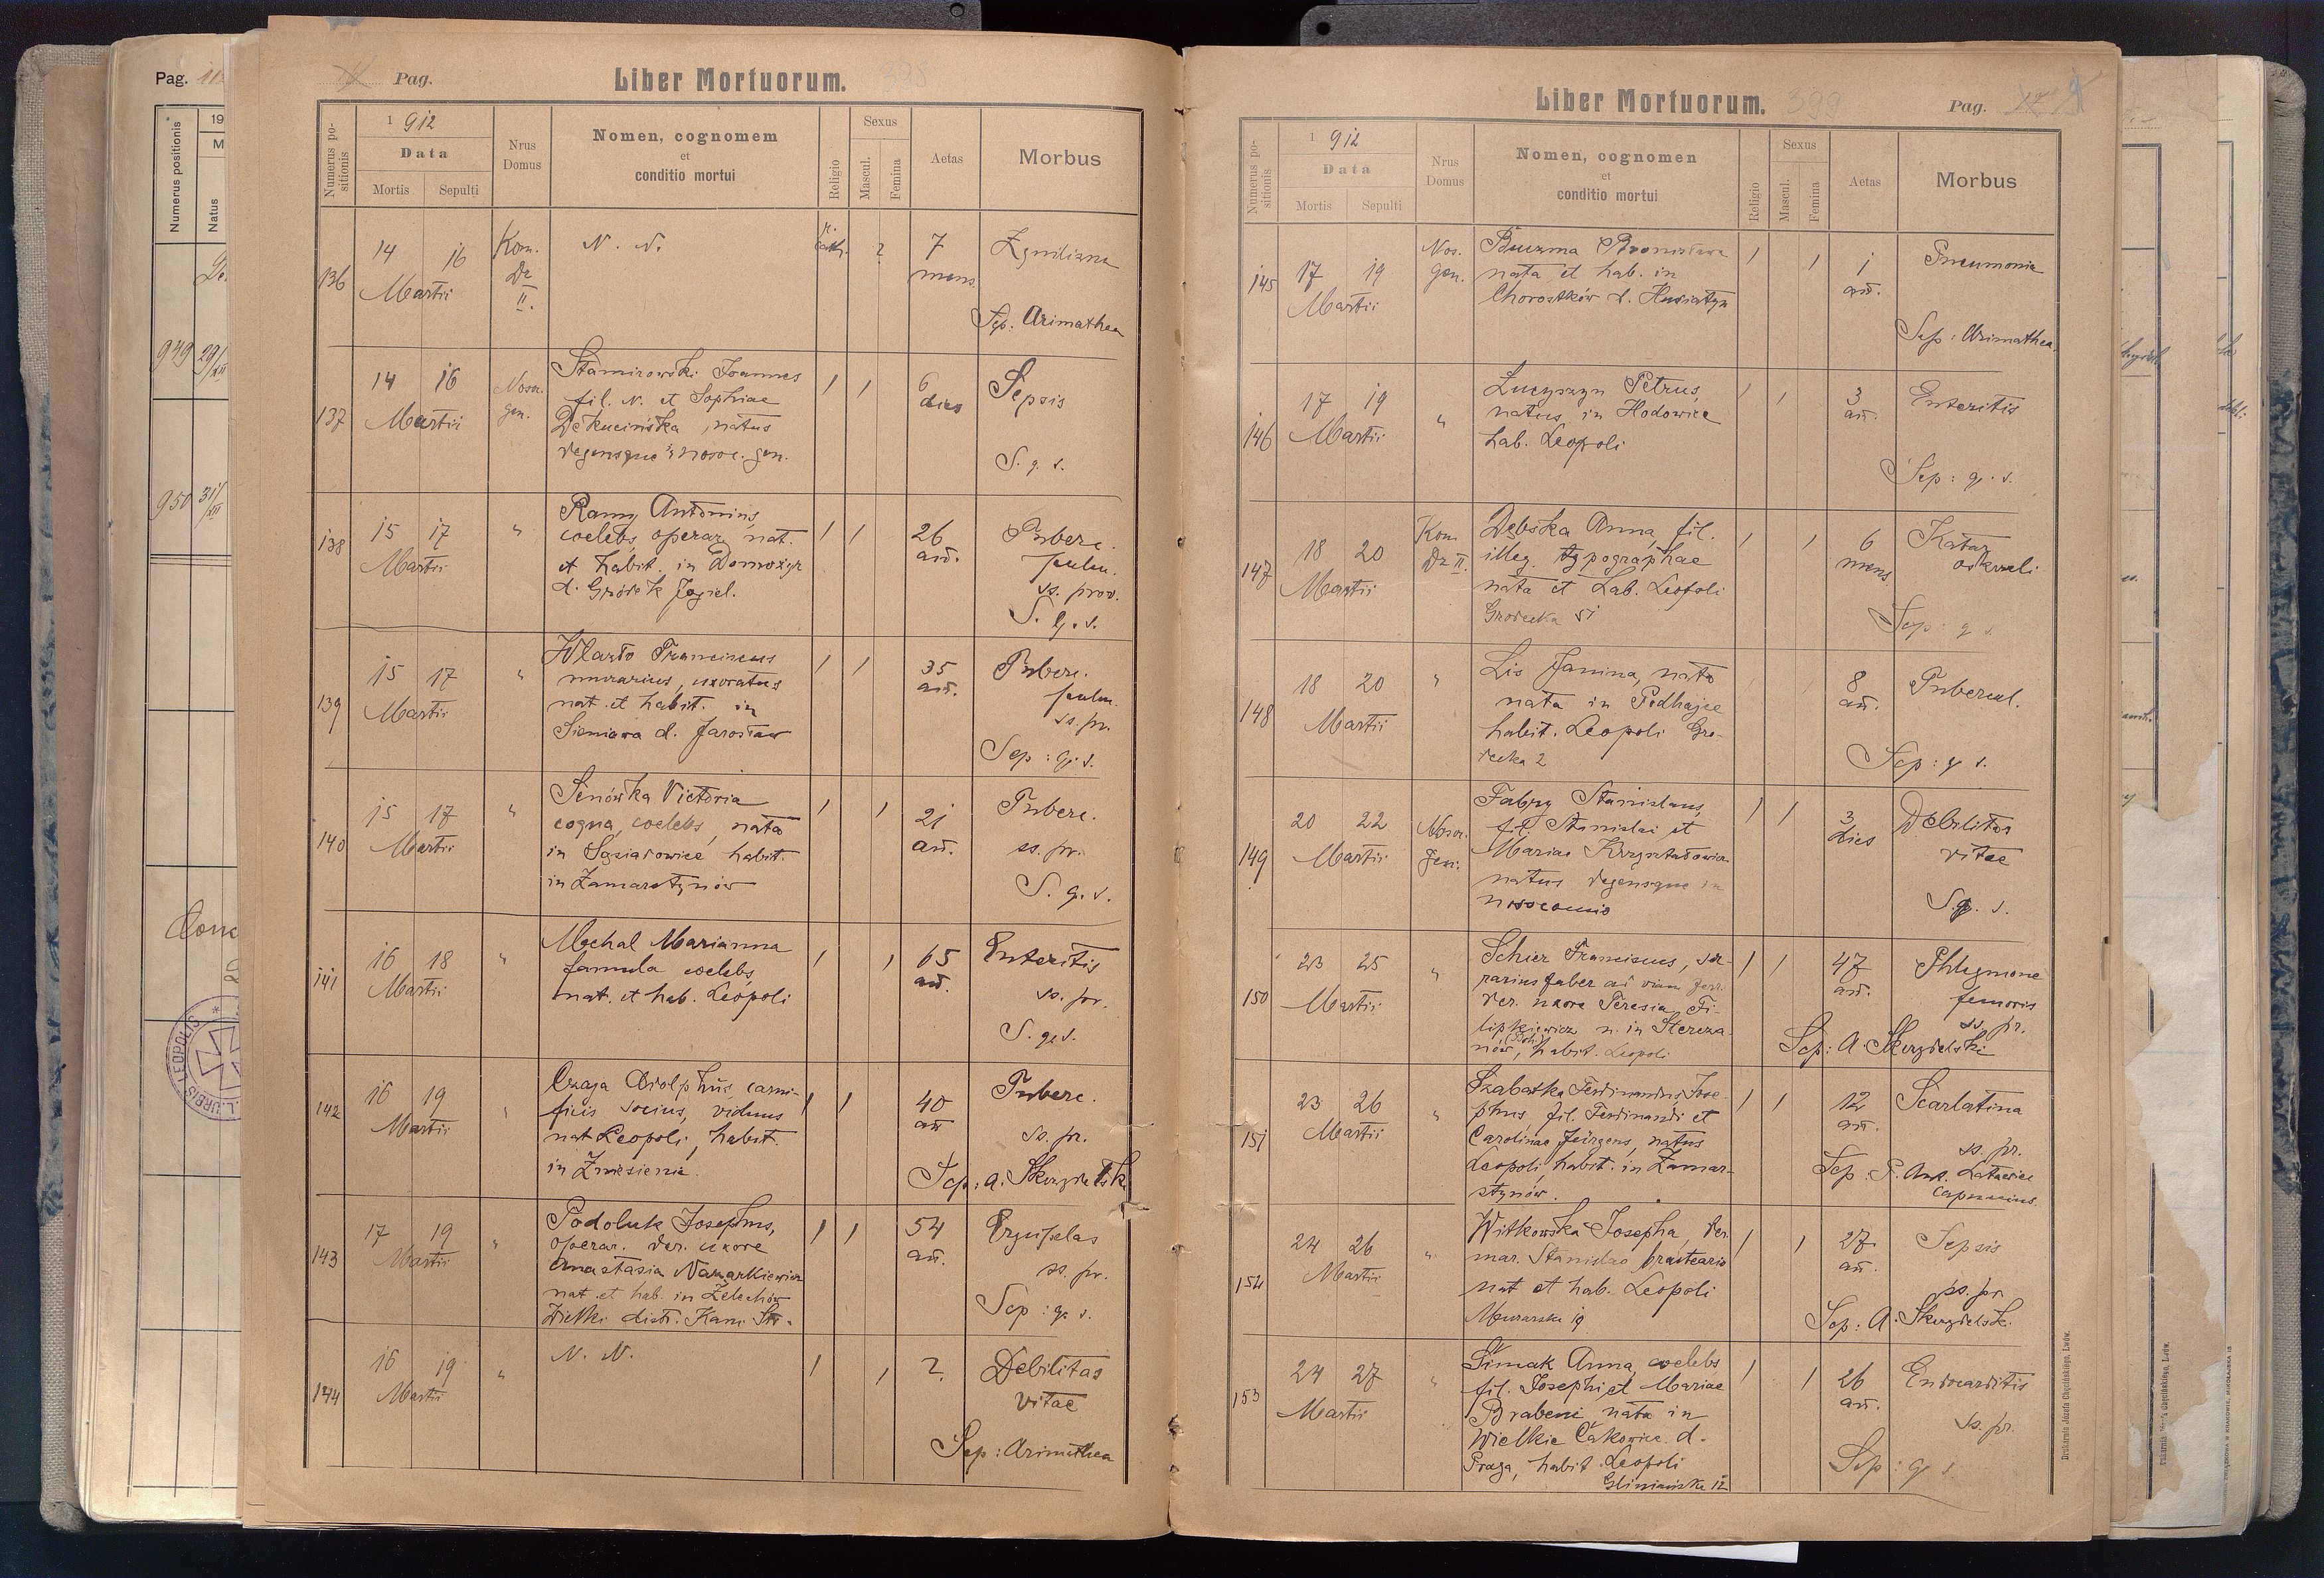 Pag.
Numerus positionis
19
M
Natus
949 29/XII
950 31/XII
LEOPOLIS
Pag. Liber Mortuorum. 398
Numerus positionis
1912
Data
Mortis Sepulti
Nrus Domus
Nomen, cognomem
et
conditio mortui
Religio
Sexus
Mascul.
Femina
Aetas
Morbus
136
14 16
Martii
Kom.
Dz
II.
N. N.
r. cath.
?
7
mens.
Zgnilizna
Sep: Arimathea
137
14 16
Martii
Nosoc.
gen.
Stamirowski Joannes
fil. N. et Sophiae
natus
degensque in nosoc. gen.
1 1
6
dies
Sepsis
S. g. s.
138
15 17
Martii
"
Antonius
coelebs, operar. nat.
et habit. in Domażyr
d. Gródek Jagiel.
1 1
26
an.
Tuberc.
pulm.
ss. prov.
S. g. s.
139
15 17
Martii
"
Franciscus
murarius, uxoratus
nat. et habit. in
Sieniawa d. Jarosław
1 1
35
an.
Tuberc.
pulm.
ss. pr.
Sep: g. s.
140
15 17
Martii
"
Senówka Victoria
coqua, coelebs, nata
in Sąsiadowice habit.
in Zamarstynów
1 1
21
an.
Tuberc.
ss. pr.
S. g. s.
141
16 18
Martii
"
Mechal Marianna
famula coelebs,
nat. et hab. Leopoli
1 1
65
an.
Enteritis
ss. pr.
S. g. s.
142
16 19
Martii
"
Czaja Adolphus, carni-
ficis socius, viduus
nat Leopoli, habit.
in Zniesienie.
1 1
40
an
Tuberc.
ss. pr.
Sep: A. Skurzdelski
143
17 19
Martii
"
Podoluk Josephus,
operar. der. uxore
Anastasia Nazarkiewicz
nat. et hab. in Żelechów
Wielki distr. Kam. Str.
1 1
54
an.
Erysipelas
ss. pr.
Sep: g. s.
144
16 19
Martii
"
N. N.
1 1
?
Debilitas
vitae
Sep: Arimathea
Liber Mortuorum. 399 Pag.
Numerus positionis
1912
Data
Mortis Sepulti
Nrus Domus
Nomen, cognomen
et
conditio mortui
Religio
Sexus
Mascul.
Femina
Aetas
Morbus
145
17 19
Martii
Nos.
gen.
Buczma Bronislava
nata et hab. in
Chorostków d. Husiatyn
1 1
1
an.
Pneumonia
Sep: Arimathea.
146
17 19
Martii
"
Łucyszyn Petrus,
natus in Hodowice
hab. Leopoli
1 1
3
an.
Enteritis
Sep: g. s.
147
18 20
Martii
Kom
Dz II.
Dębska Anna, fil.
illeg. typographae
nata et hab. Leopoli
Grodecka 51
1 1
6
mens.
Katar
oskrzeli
Sep: g s.
148
18 20
Martii
"
Lis Janina, nata
nata in Podhajce
habit. Leopoli Gro-
decka 2
8
an.
Tubercul.
Sep: g s.
149
20 22
Martii
Nosoc.
gen.
Fabry Stanislaus,
fil. Stanislai et
Mariae Krzyształowicz
natus degensque in
nosocomio
1 1
3
dies
Debilitas
vitae
S. g. s.
150
23 25
Martii
"
Schier Franciscus, ser-
rarius faber ad viam ferr.
der. uxore Teresia Fi-
lipkiewicz n. in Stereza
nów, habit. Leopoli
1 1
47
an.
Phlegmone
femoris
ss. pr.
Sep: A. Skurzdelski
151
23 26
Martii
"
Szabatka Ferdinandus, Jose-
phus, fil. Ferdinandi et
Carolinae Jürgens, natus
Leopoli, habit. in Zamar-
stynów.
1 1
12
an.
Scarlatina
ss. pr.
Sep: P. Ant. Łatawiec
Capucinus.
152
24 26
Martii
"
Witkowska Josepha, der.
mar. Stanislao
nat et hab. Leopoli
Murarska 19
1 1
27
an.
Sepsis
ss. pr
Sep: A. Skurzdelski.
153
24 27
Martii
"
Šimak Anna, coelebs
fil. Josephi et Mariae
Brabeni, nata in
Wielkie Čakowice d.
Praga, habit Leopoli
Gliniańska 12
1 1
26
an.
Endocarditis
ss. pr.
Sep: g s
Drukarnia Józefa Chęcińskiego, Lwów.